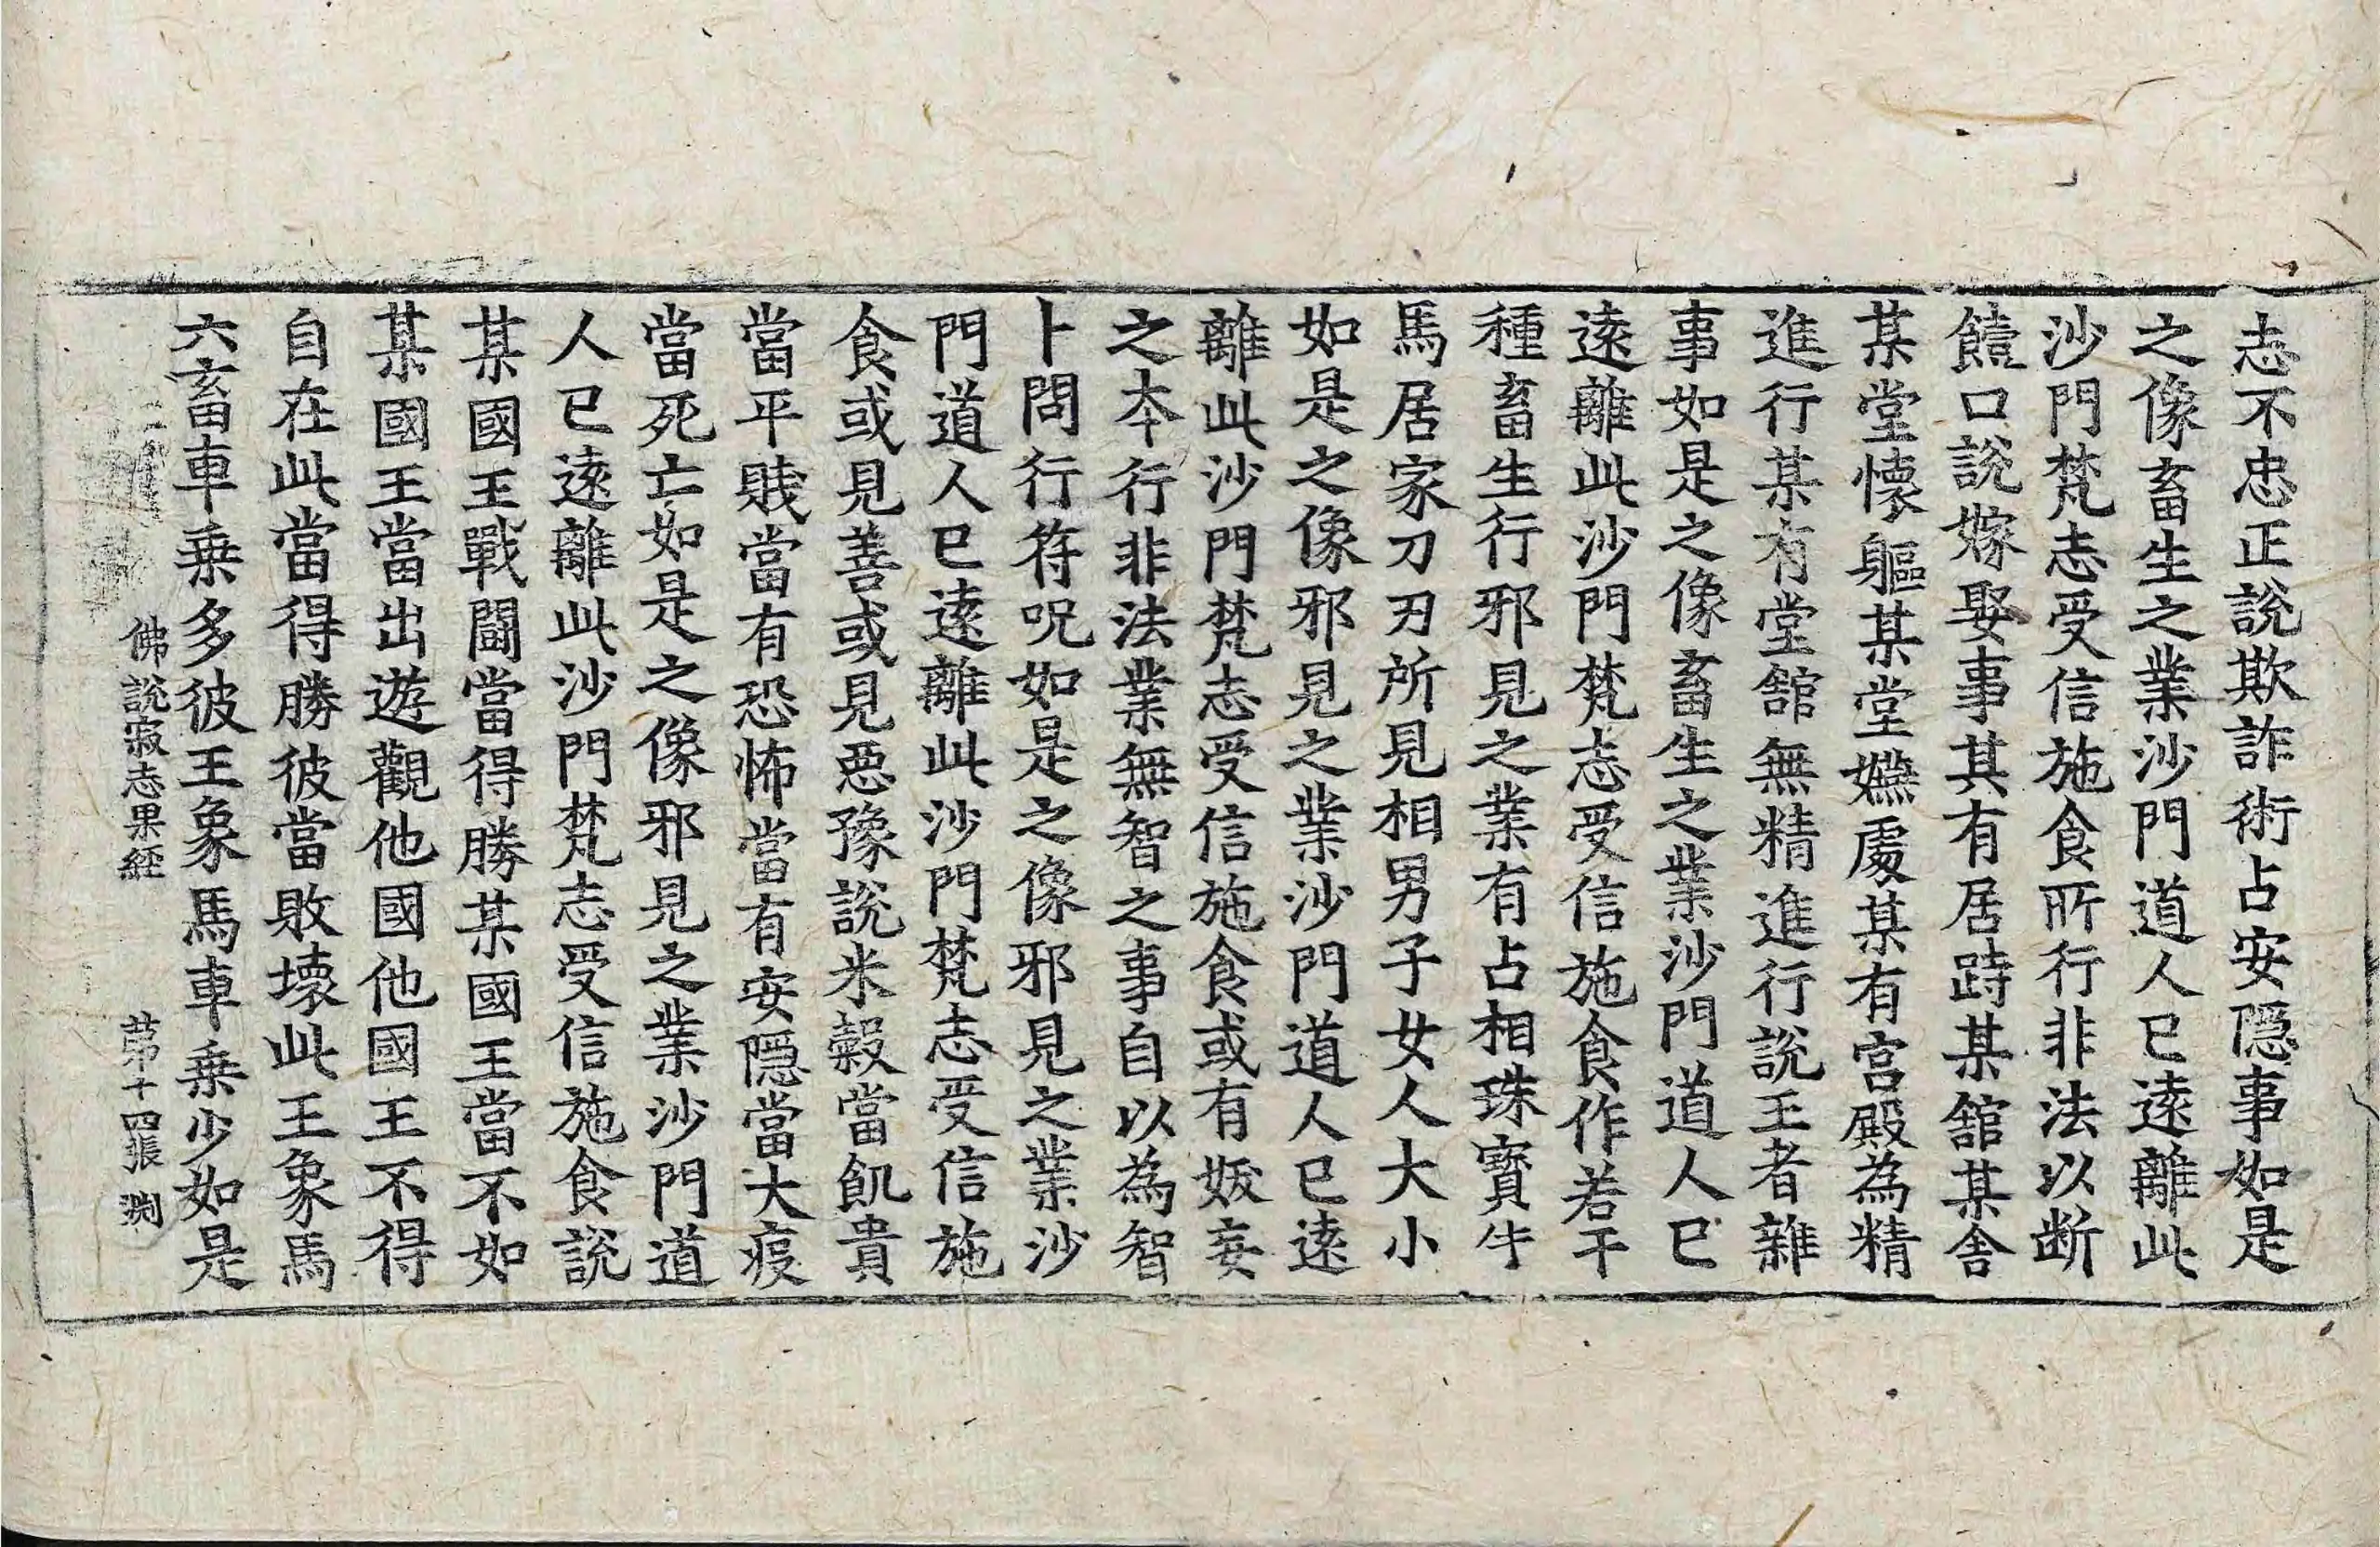 志不忠正說欺詐術占安隱事如是
之像畜生之業沙門道人已遠離此
沙門梵志受信施食所行非法以断
饐口說嫁娶事其有居跱某舘某舍
某堂懷軀某堂嬿處某有宮殿為精
進行某有堂舘無精進行說王者雜
事如是之像畜生之業沙門道人已
遠離此沙門梵志受信施食作若干
種畜生行邪見之業有占相珠寶牛
馬居家刀刃所見相男子女人大小
如是之像邪見之業沙門道人已遠
離此沙門梵志受信施食或有妭妄
之本行非法業無智之事自以為智
卜問行符呪如是之像邪見之業沙
門道人已遠離此沙門梵志受信施
食或見善或見惡豫說米穀當飢貴
當平賤當有恐怖當有安隱當大疫
當死亡如是之像邪見之業沙門道
人已遠離此沙門梵志受信施食說
某國王戰鬪當得勝某國王當不如
某國王當出遊觀他國他國王不得
自在此當得勝彼當敗壞此王象馬
六畜車乗多彼王象馬車乗少如是
佛說寂志果經 苐十四張 渕